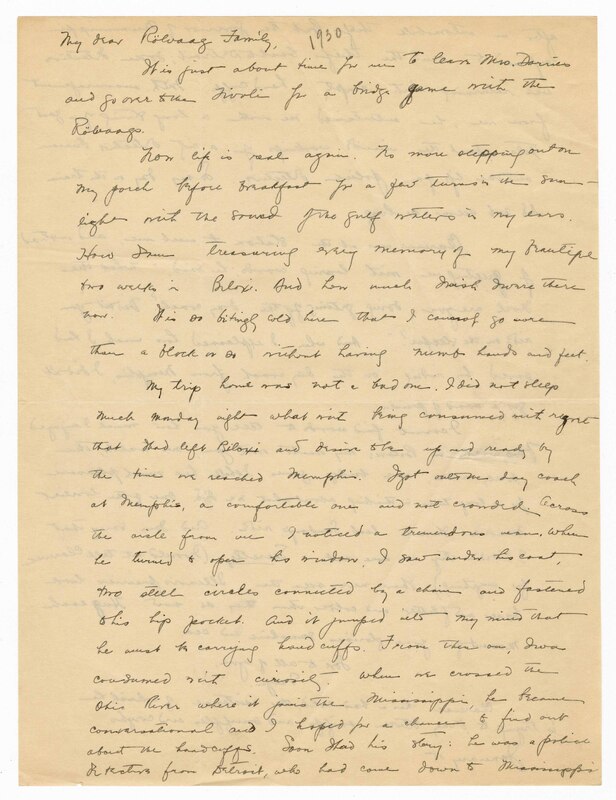 My dear Rölvaag Family,
1930
It is just about time for me to leave Mrs. Davies
and go over to the Tivoli for a bridge game with the
Rölvaags.
Now life is real again. No more stepping out on
my porch before breakfast for a few turns in the sun-
light with the sound of the gulf waters in my ears.
How I am treasuring every memory of my beautiful
two weeks in Biloxi. And how much I wish I were there
now. It is so bitingly cold here that I cannot go more
than a block or so without having numb hands and feet.
My trip home was not a bad one. I did not sleep
much Monday night what with being consumed with regret
that I had left Biloxi and desire to be up and ready by
the time we reached Memphis. I got onto the day coach
at Memphis, a comfortable one and not crowded. Across
the aisle from me I noticed a tremendous man. When
he turned to open his window, I saw under his coat,
two steel circles connected by a chain and fastened
to his hip pocket. And it jumped into my mind that
he must be carrying handcuffs. From then on, I was
consumed with curiosity. When we crossed the
Ohio River where it joins the Mississippi, he became
conversational and I hoped for a chance to find out
about the handcuffs. Soon I had his story: he was a police
detective from Detroit, who had come down to Mississippi